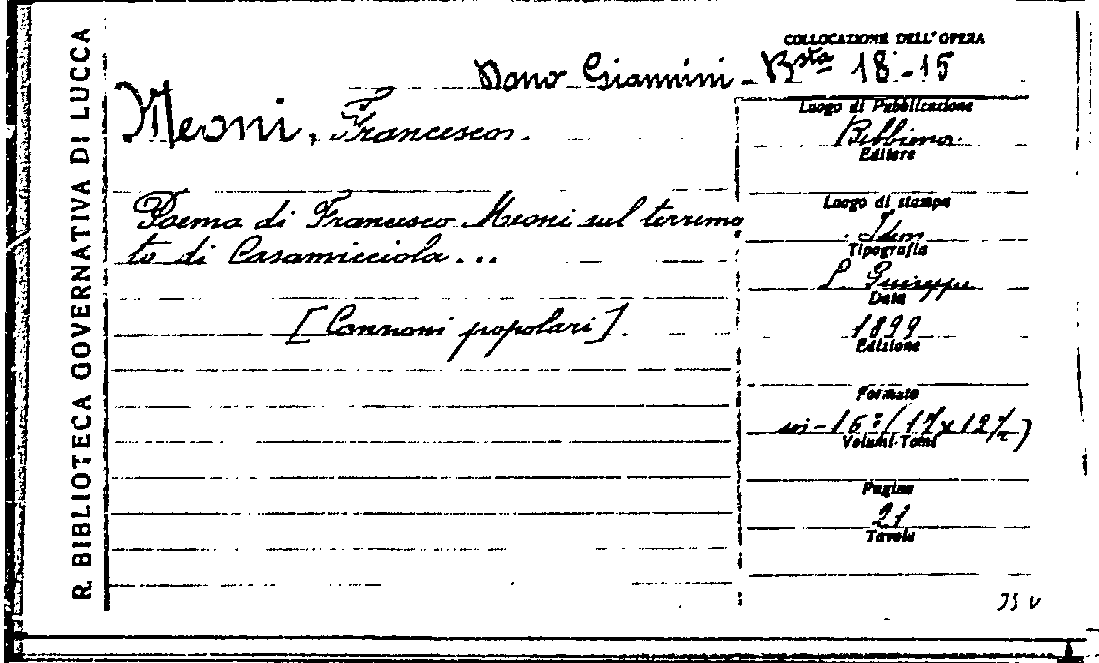 R. BIBLIOTECA GOVERNATIVA DI LUCCA
COLLOCAZIONE DELL'OPERA
Dono Giannini - Bsta 18-15
Meoni, Francesco.
Luogo di Pubblicazione
Bibbiena
Editore
Poema di Francesco Meoni sul terremo
to di Casamicciola...
[Canzoni popolari].
Luogo di stampa
Idem
Tipografia
Data
1899
Edizione
Formato
in-16º (17 x 12½)
Volumi-Tomi
Pagine
21
Tavole